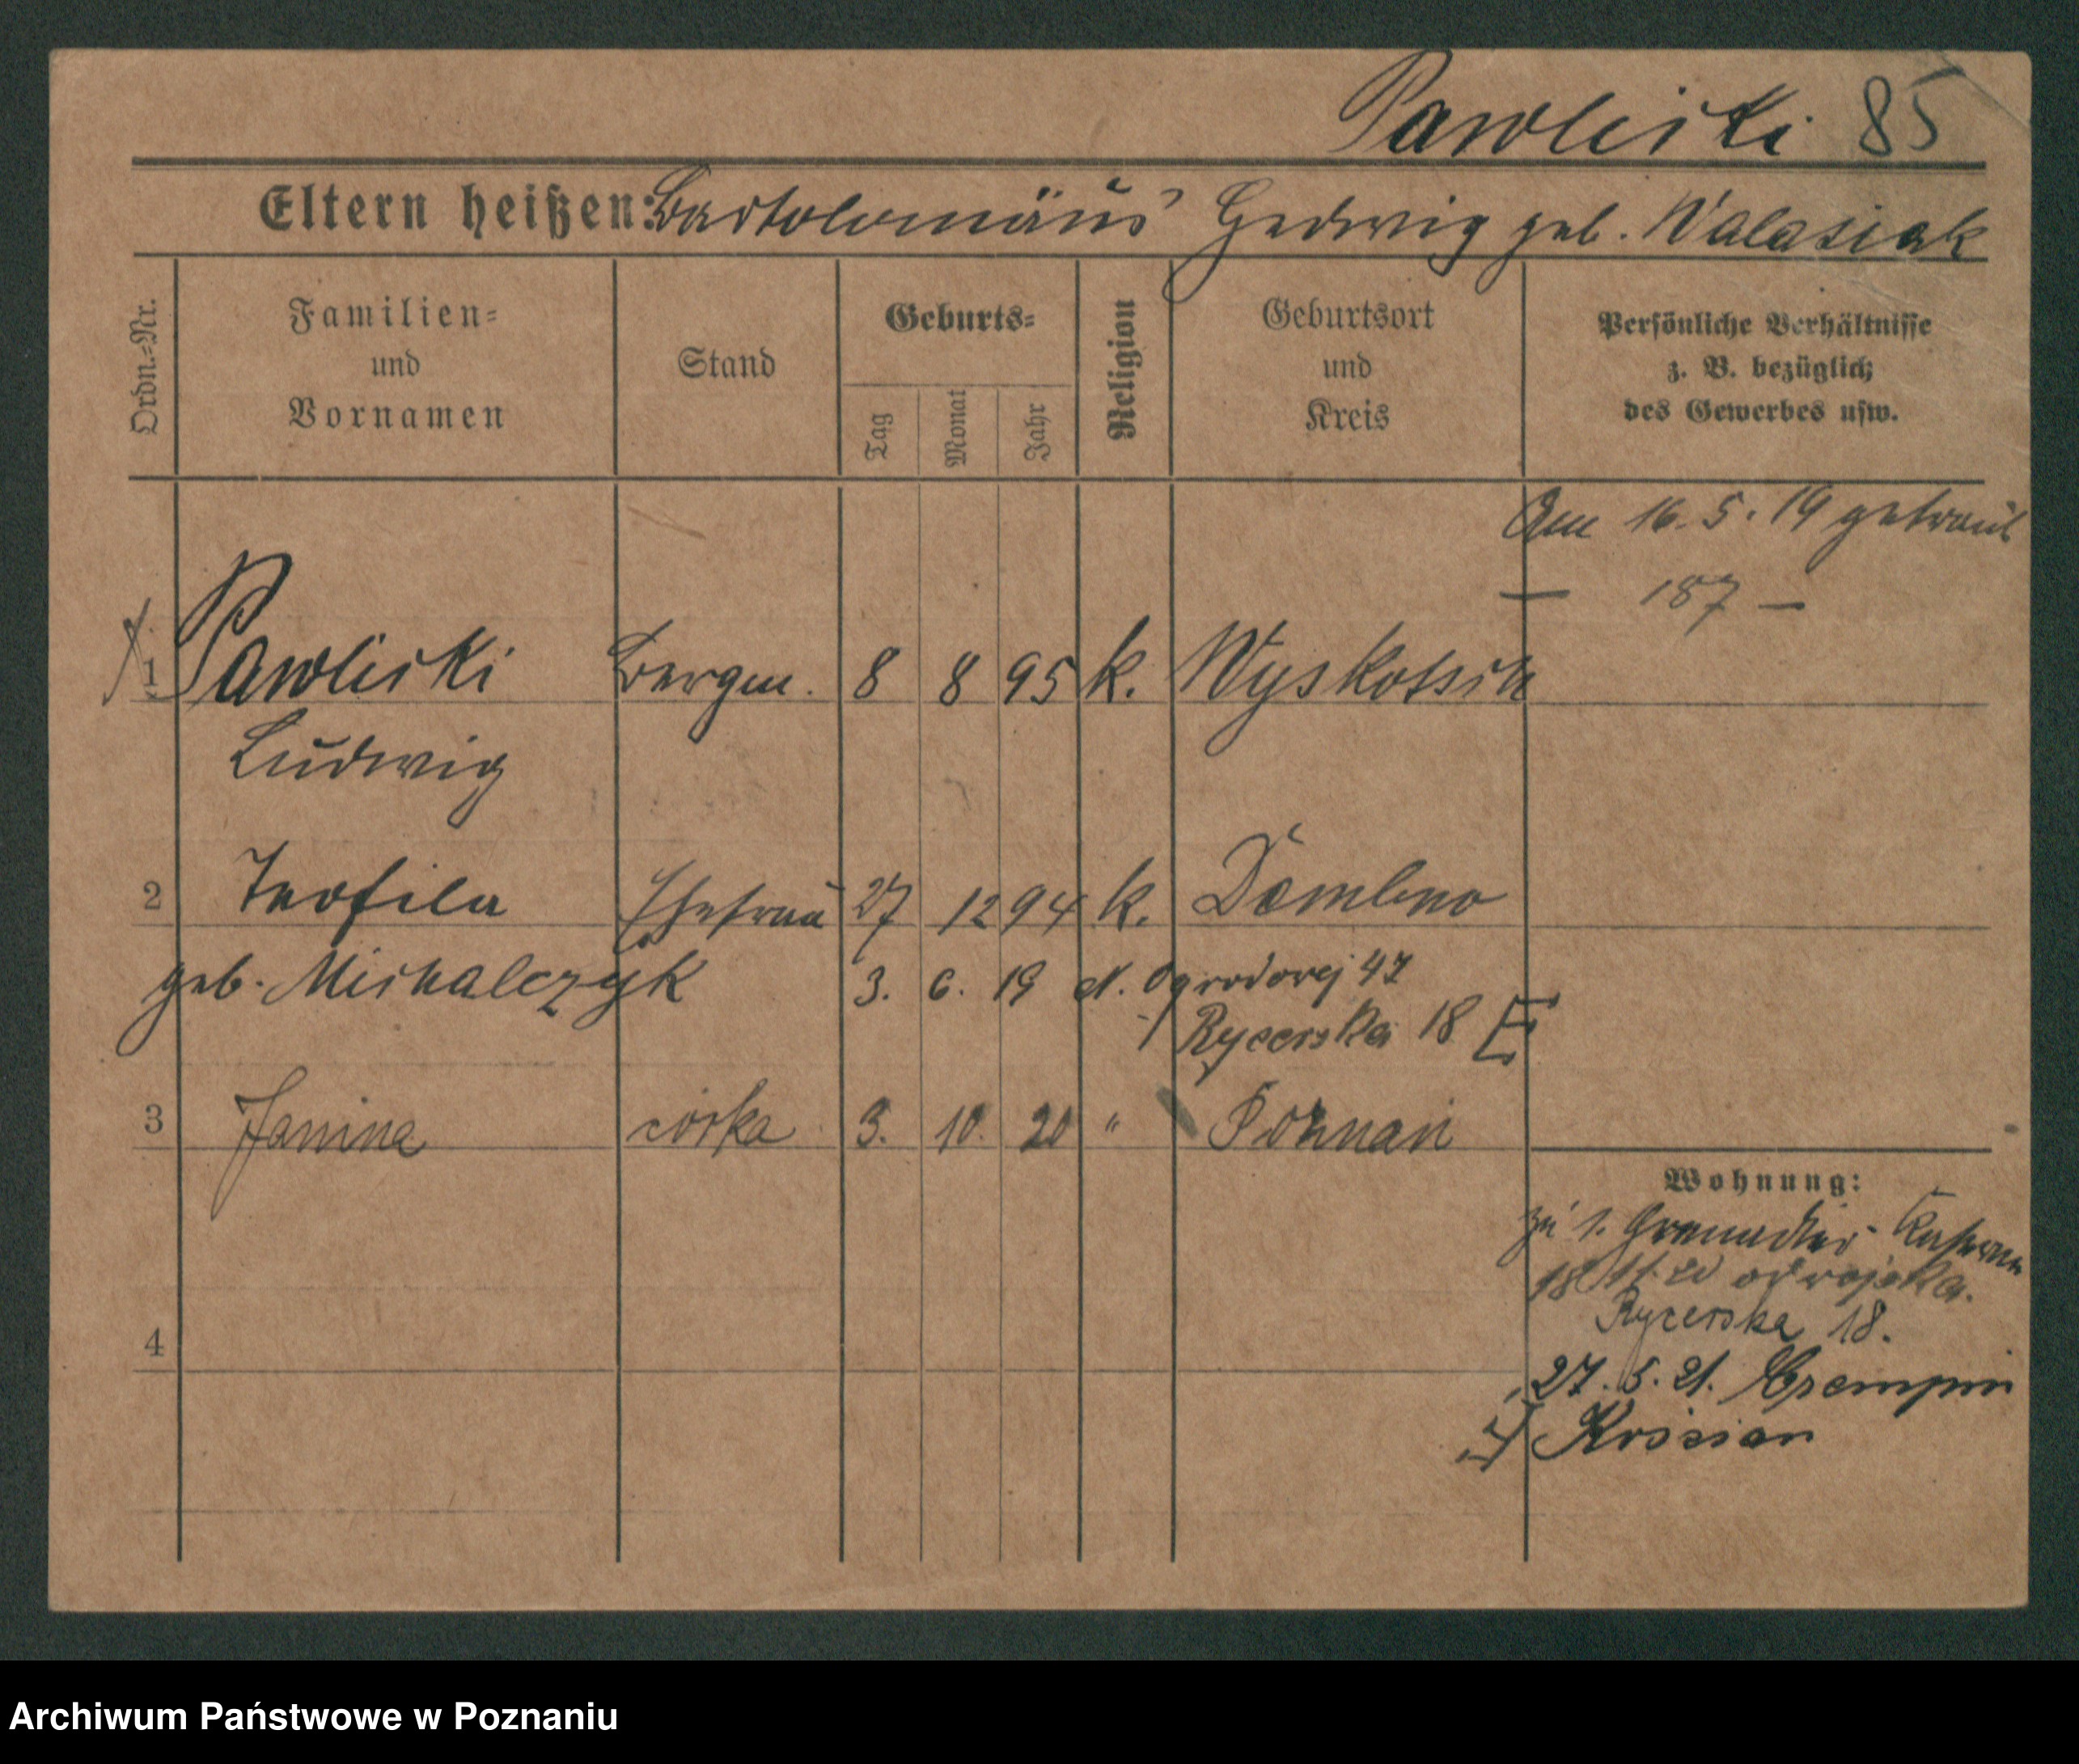 Pawlicki 85
Eltern heißen: Bartolomäus Hedwig geb. Walasiak
Ordn.-Nr.
Familien-
und
Vornamen
Stand
Geburts-
Tag
Monat
Jahr
Religion
Geburtsort
und
Kreis
Persönliche Verhältnisse
z. B. bezüglich
des Gewerbes usw.
Am 16.5.19 getraut
— 187 —
1 Pawlicki Bergm. 8 8 95 k.
Ludwig
2 Teofila Ehefrau 27 12 94 k. Dembno
geb. Michalczyk 3. 6. 19 Ogrodowej 47
Rycerska 18
3 Janina córka 3. 10. 20 " Poznań
Wohnung:
zu 1. Grenadier-Kaserne
18 11. 20 od wojska.
Rycerska 18.
4
27. 5. 21. Czempiń